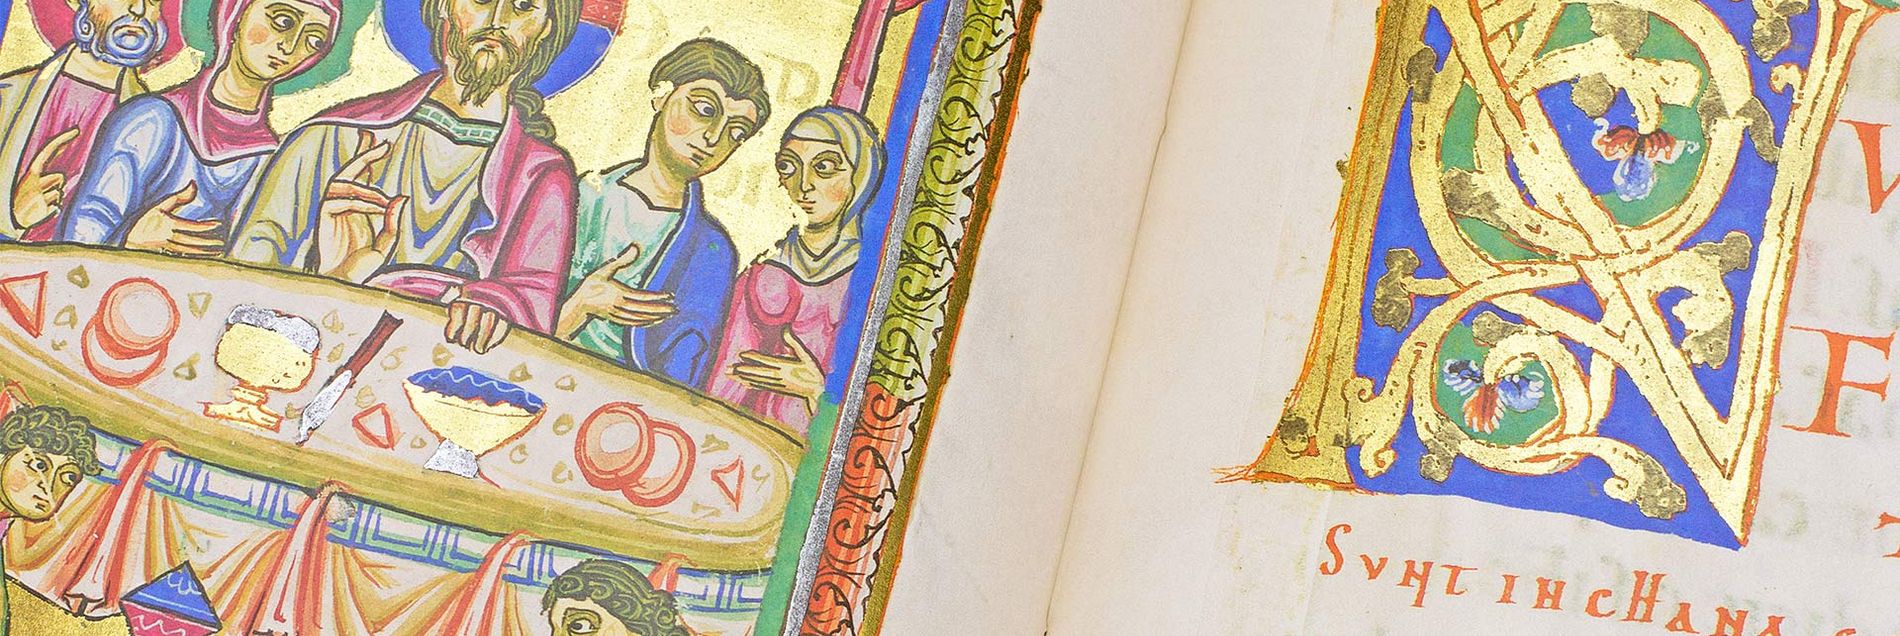 N V
F
SVNT IN CHANA